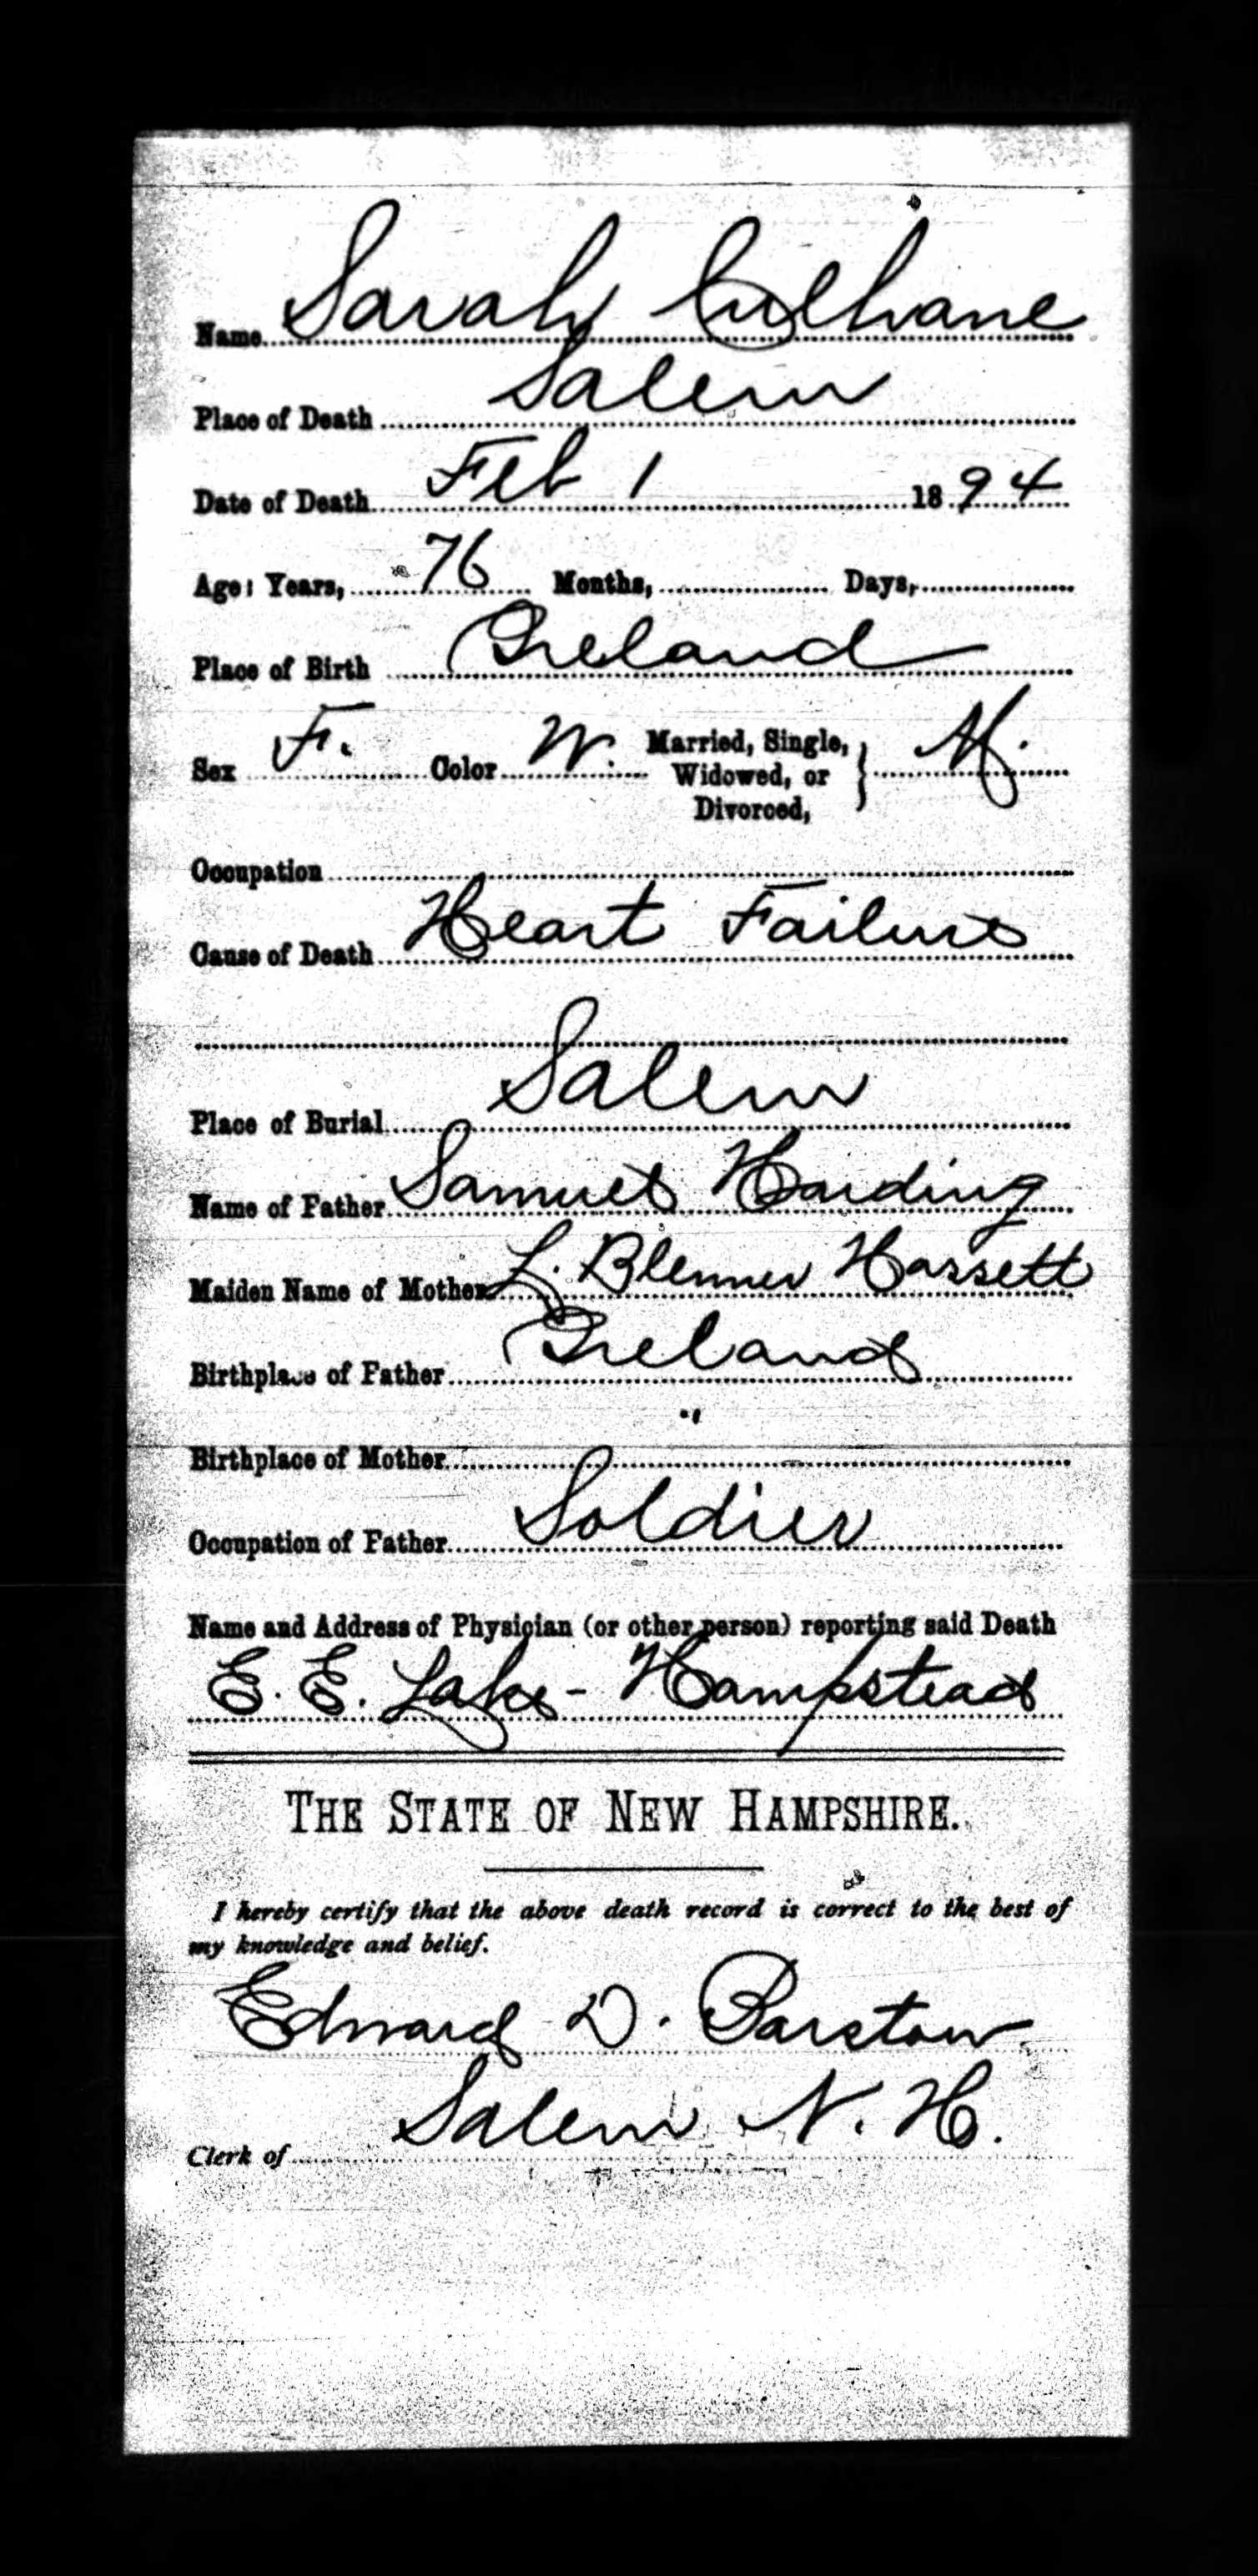 Name Sarah Culhane
Place of Death Salem
Date of Death Feb 1 1894
Age: Years, 76 Months, Days,
Place of Birth Ireland
Sex F. Color W. Married, Single, Widowed, or Divorced, } M.
Occupation
Cause of Death Heart Failure
Place of Burial Salem
Name of Father Samuel Harding
Maiden Name of Mother L. Blenner Hassett
Birthplace of Father Ireland
Birthplace of Mother "
Occupation of Father Soldier
Name and Address of Physician (or other person) reporting said Death
E. E. Lake - Hampstead
THE STATE OF NEW HAMPSHIRE.
I hereby certify that the above death record is correct to the best of
my knowledge and belief.
Edward D. Barstow
Clerk of Salem N. H.